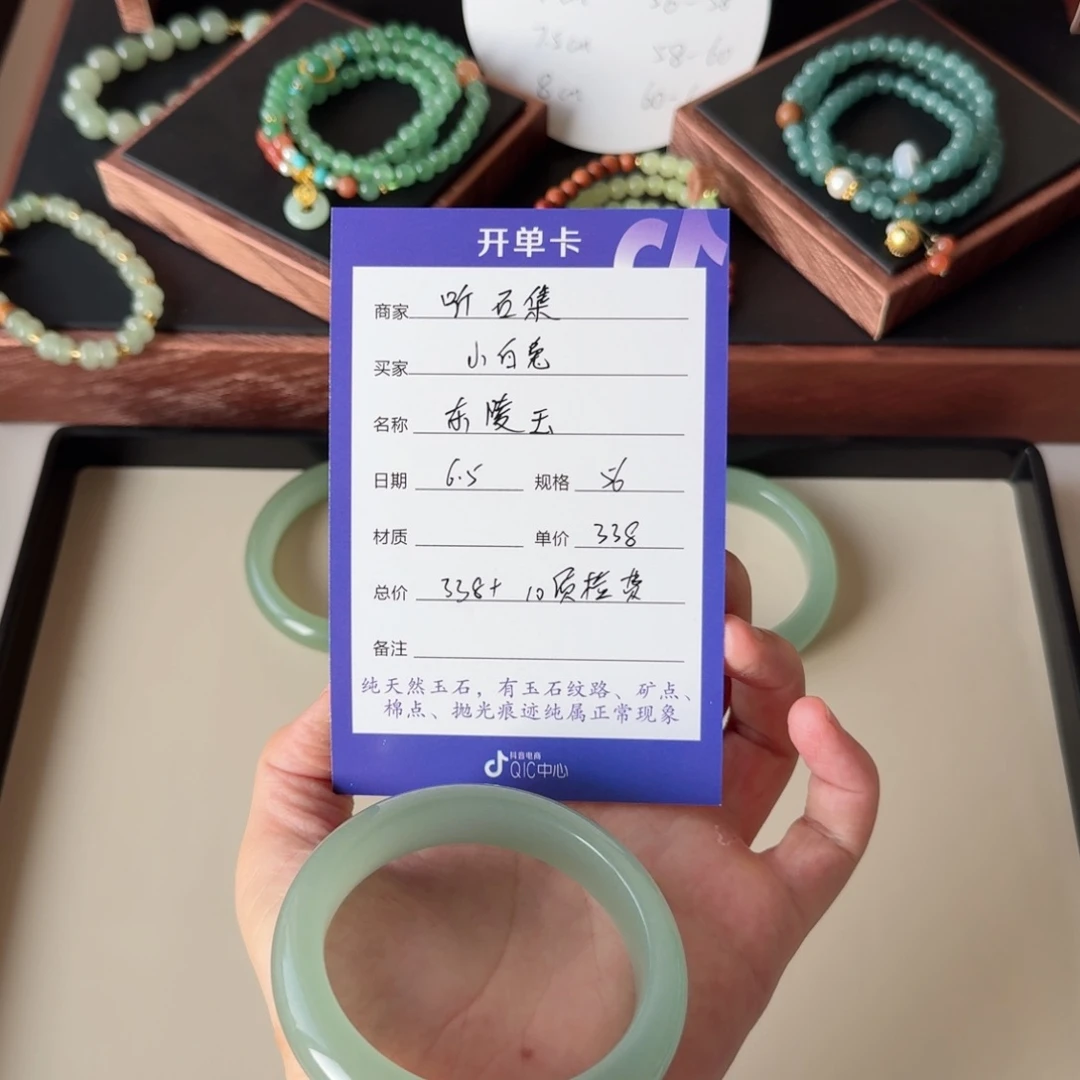 7.5cm 58-60
8cm
开单卡
商家 听石集
买家 小白兔
名称 东陵玉
日期 6.5 规格 56
材质 单价 338
总价 338+10质检费
备注
纯天然玉石，有玉石纹路、矿点、
棉点、抛光痕迹纯属正常现象
抖音电商
QIC中心